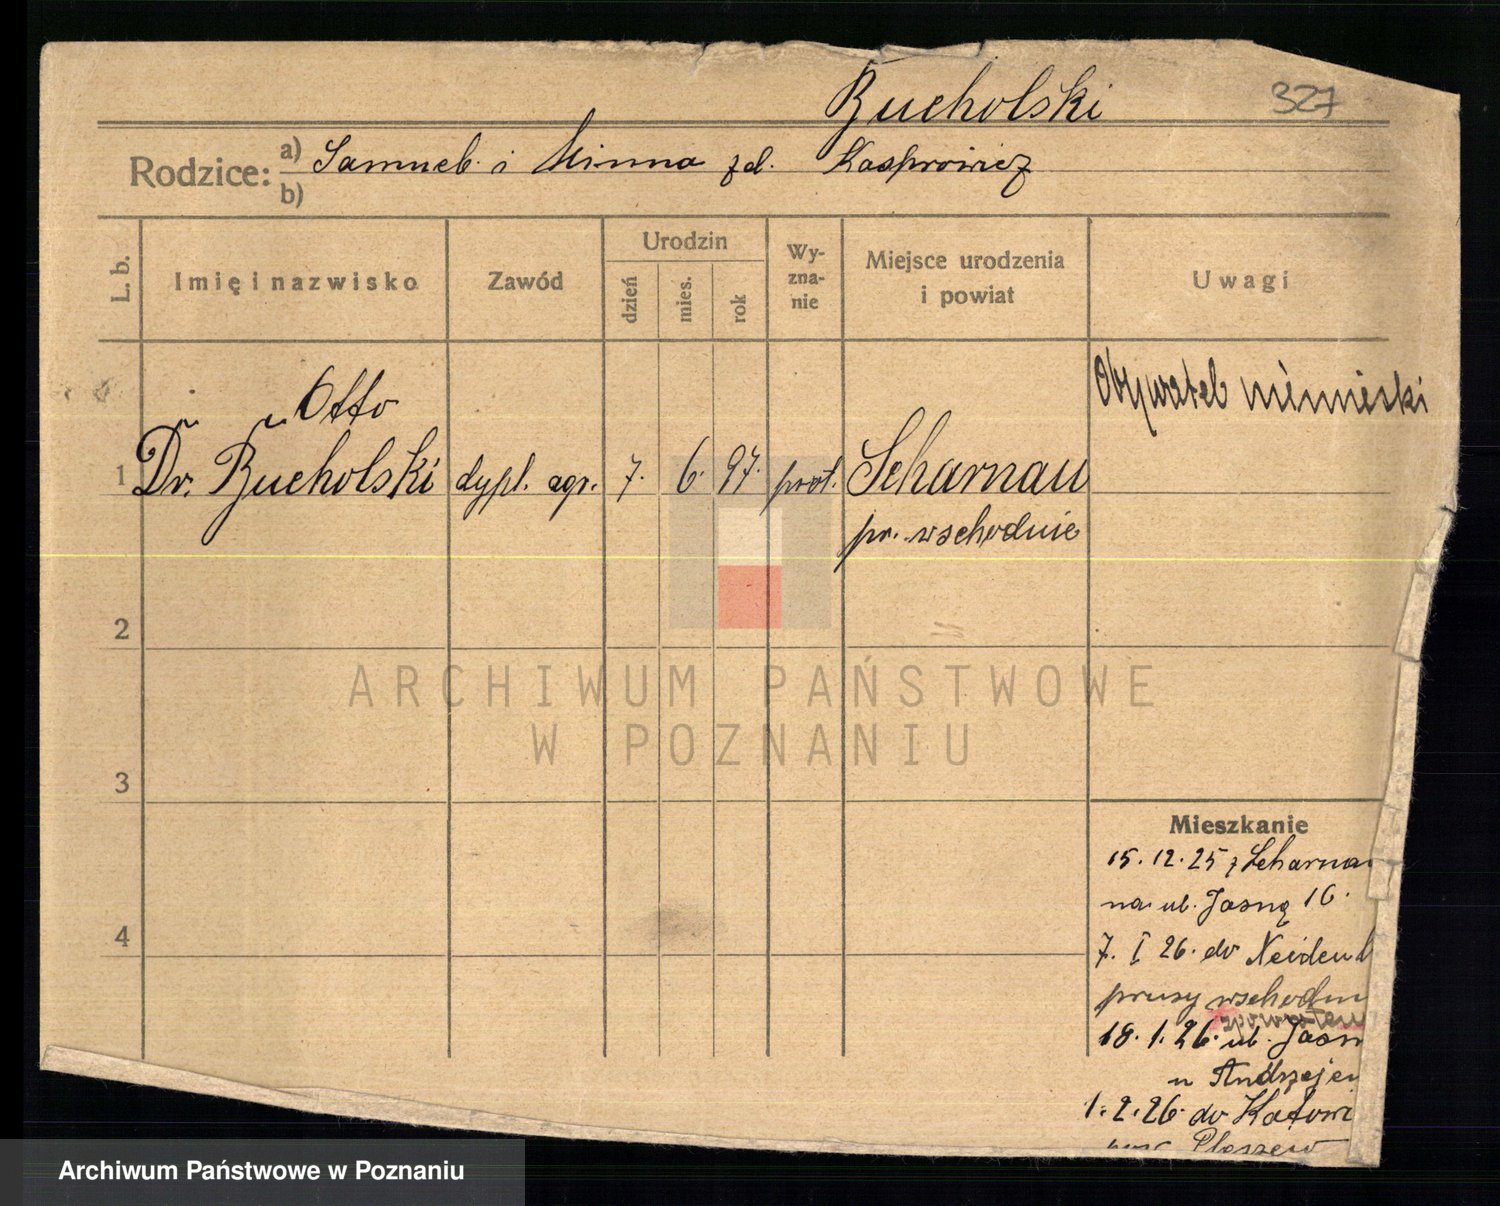 Bucholski 327
Rodzice: a) Samuel i Minna zd. Kasprowicz
b)
L. b. Imię i nazwisko Zawód Urodzin dzień mies. rok Wy-zna-nie Miejsce urodzenia i powiat Uwagi
Obywatel niemiecki
Otto
1 Dr. Bucholski dypl. agr. 7. 6. 97. prot. Scharnau
pr. wschodnie
2
3
4
Mieszkanie
15.12.25 z Scharnau
na ul. Jasną 16.
7. I 26. do Neidenb
prusy wschodn
18.1.26. ul. Jasn
u Andrzejew
1.2.26. do Katowi
pow. Pleszew
ARCHIWUM PAŃSTWOWE
W POZNANIU
Archiwum Państwowe w Poznaniu